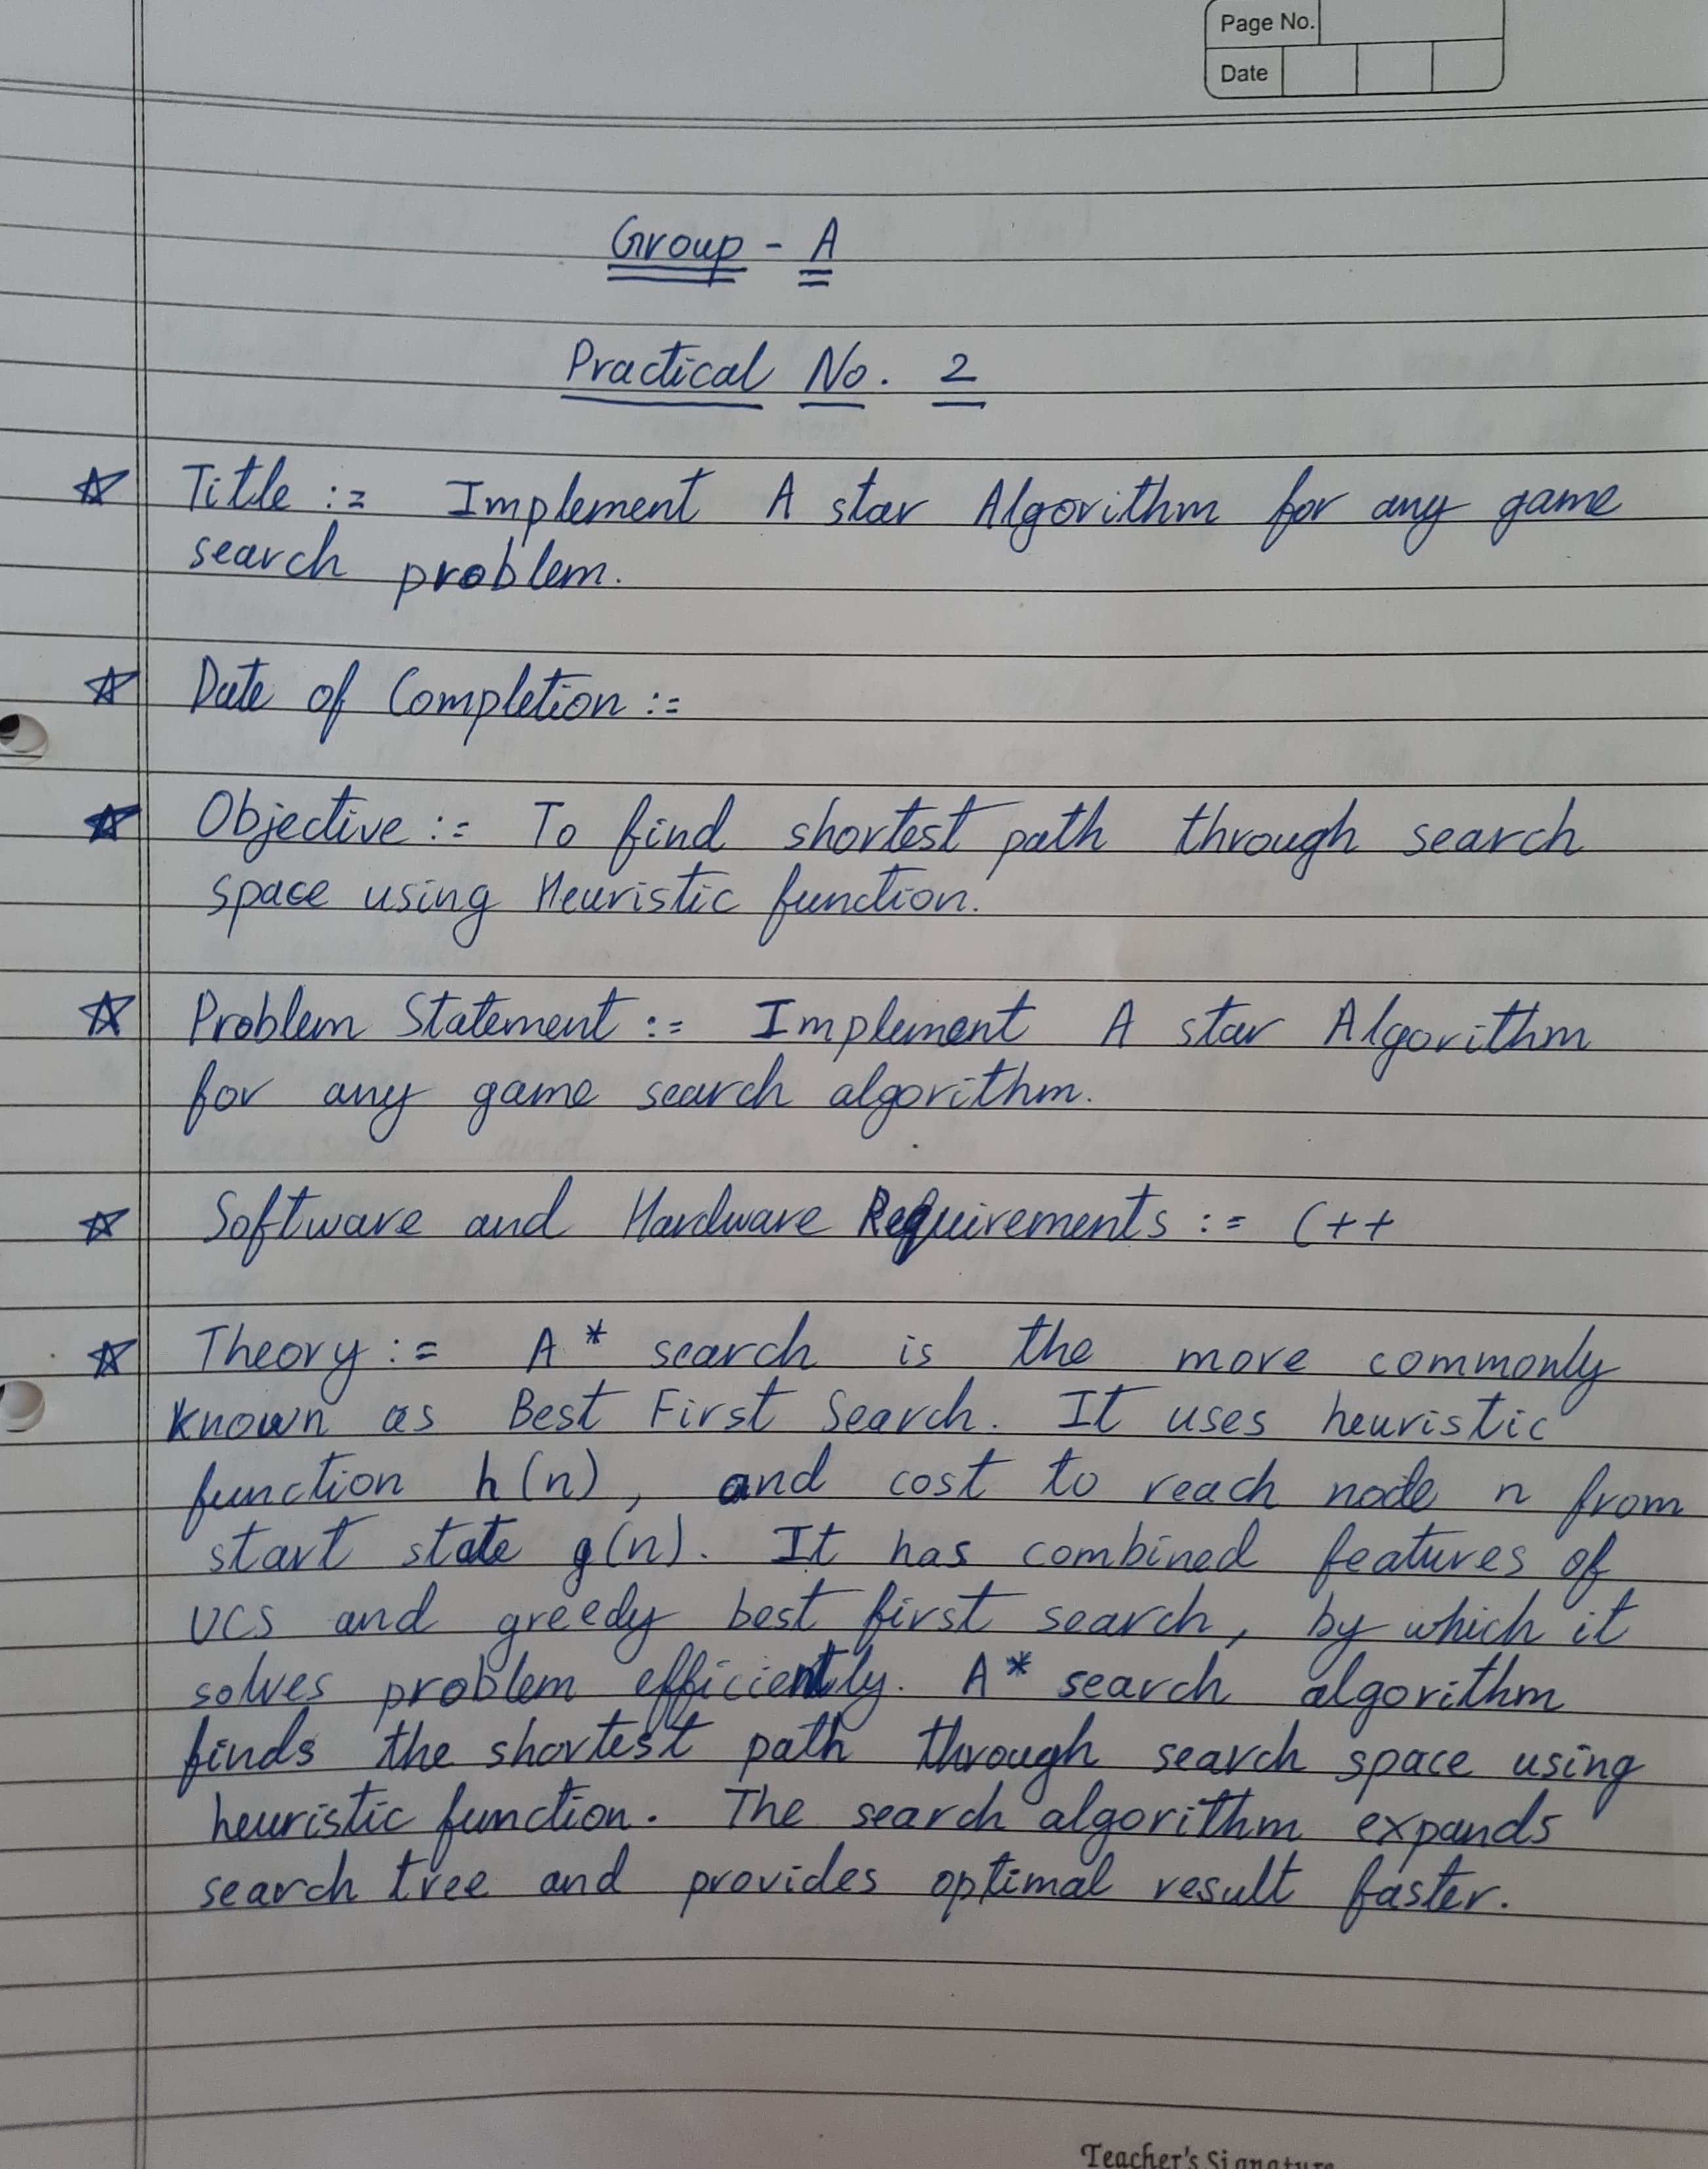 Page No.
Date
Group - A
Practical No. 2
☆ Title := Implement A star Algorithm for any game
search problem.
☆ Date of Completion :=
☆ Objective := To find shortest path through search
space using Heuristic function.
☆ Problem Statement := Implement A star Algorithm
for any game search algorithm.
☆ Software and Hardware Requirements := C++
☆ Theory := A* search is the more commonly
known as Best First Search. It uses heuristic
function h(n), and cost to reach node n from
start state g(n). It has combined features of
UCS and greedy best first search, by which it
solves problem efficiently. A* search algorithm
finds the shortest path through search space using
heuristic function. The search algorithm expands
search tree and provides optimal result faster.
Teacher's Signature